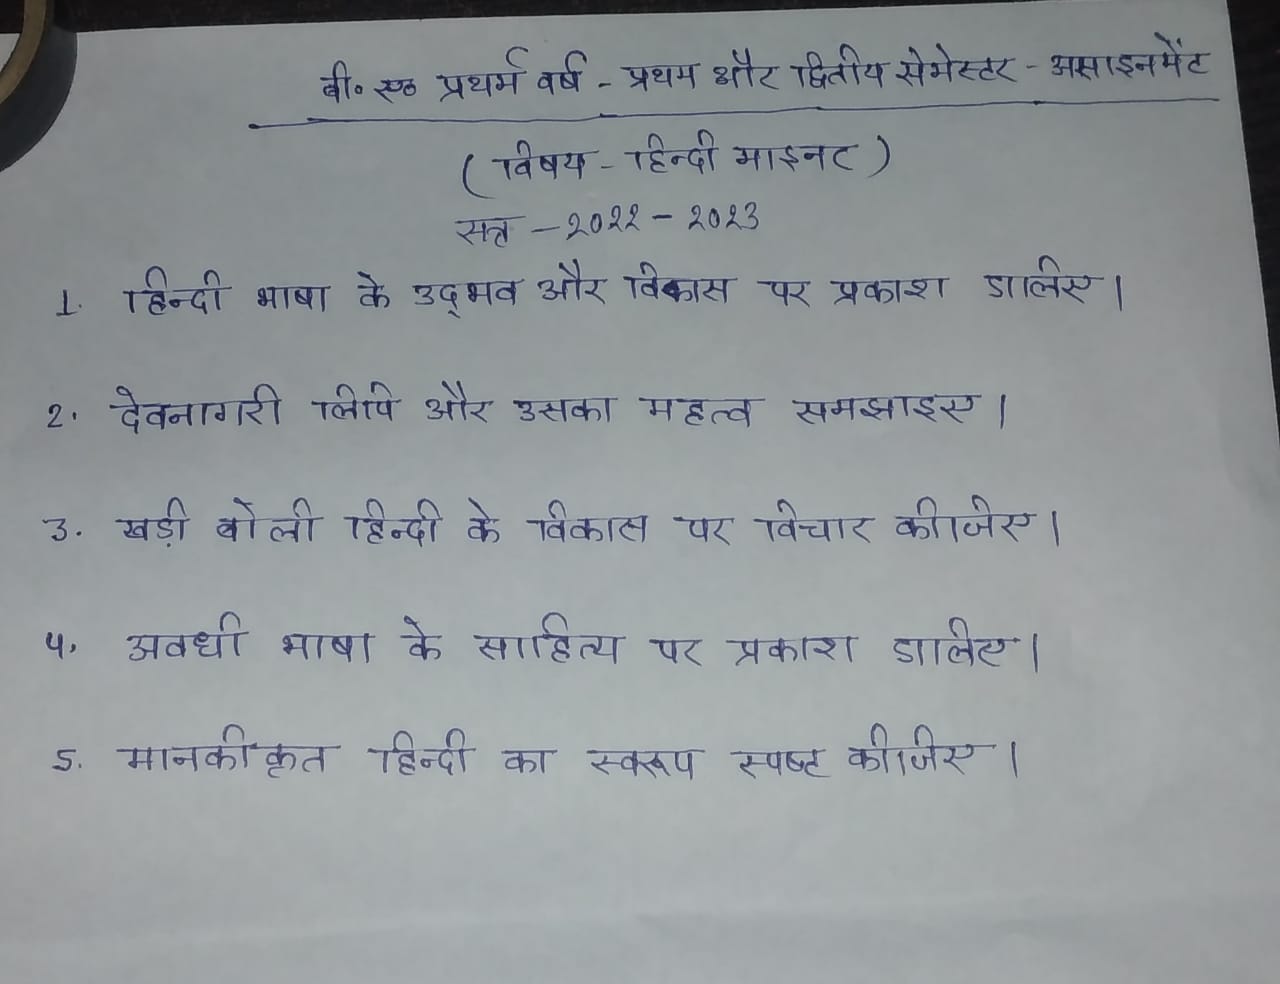 बी॰ ए॰ प्रथम वर्ष - प्रथम और द्वितीय सेमेस्टर - असाइनमेंट
( विषय - हिन्दी माइनर )
सत्र - 2022 - 2023
1. हिन्दी भाषा के उद्‌भव और विकास पर प्रकाश डालिए।
2. देवनागरी लिपि और उसका महत्व समझाइए।
3. खड़ी बोली हिन्दी के विकास पर विचार कीजिए।
4. अवधी भाषा के साहित्य पर प्रकाश डालिए।
5. मानकीकृत हिन्दी का स्वरूप स्पष्ट कीजिए।